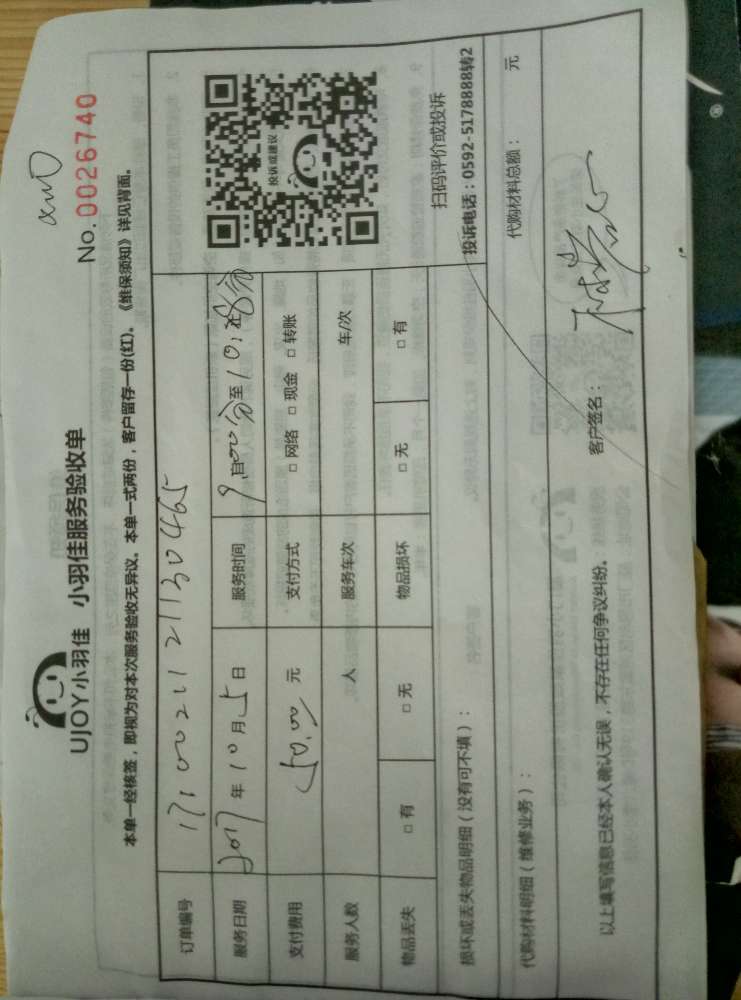 UJOY小羽佳 小羽佳服务验收单
No. 0026740
本单一经核签，即视为对本次服务验收无异议。本单一式两份，客户留存一份(红)。《维保须知》详见背面。
订单编号
服务日期 2017 年 10 月 5 日 服务时间 9 时 00 分至 10 时 分
支付费用 50.00 元 支付方式 □ 网络 □ 现金 □ 转账
服务人数 人 服务车次 车/次
物品丢失 □ 有 □ 无 物品损坏 □ 无 □ 有
投诉或建议
扫码评价或投诉
投诉电话：0592-5178888转2
损坏或丢失物品明细（没有可不填）：
代购材料明细（维修业务）： 代购材料总额： 元
以上填写信息已经本人确认无误，不存在任何争议纠纷。 客户签名：